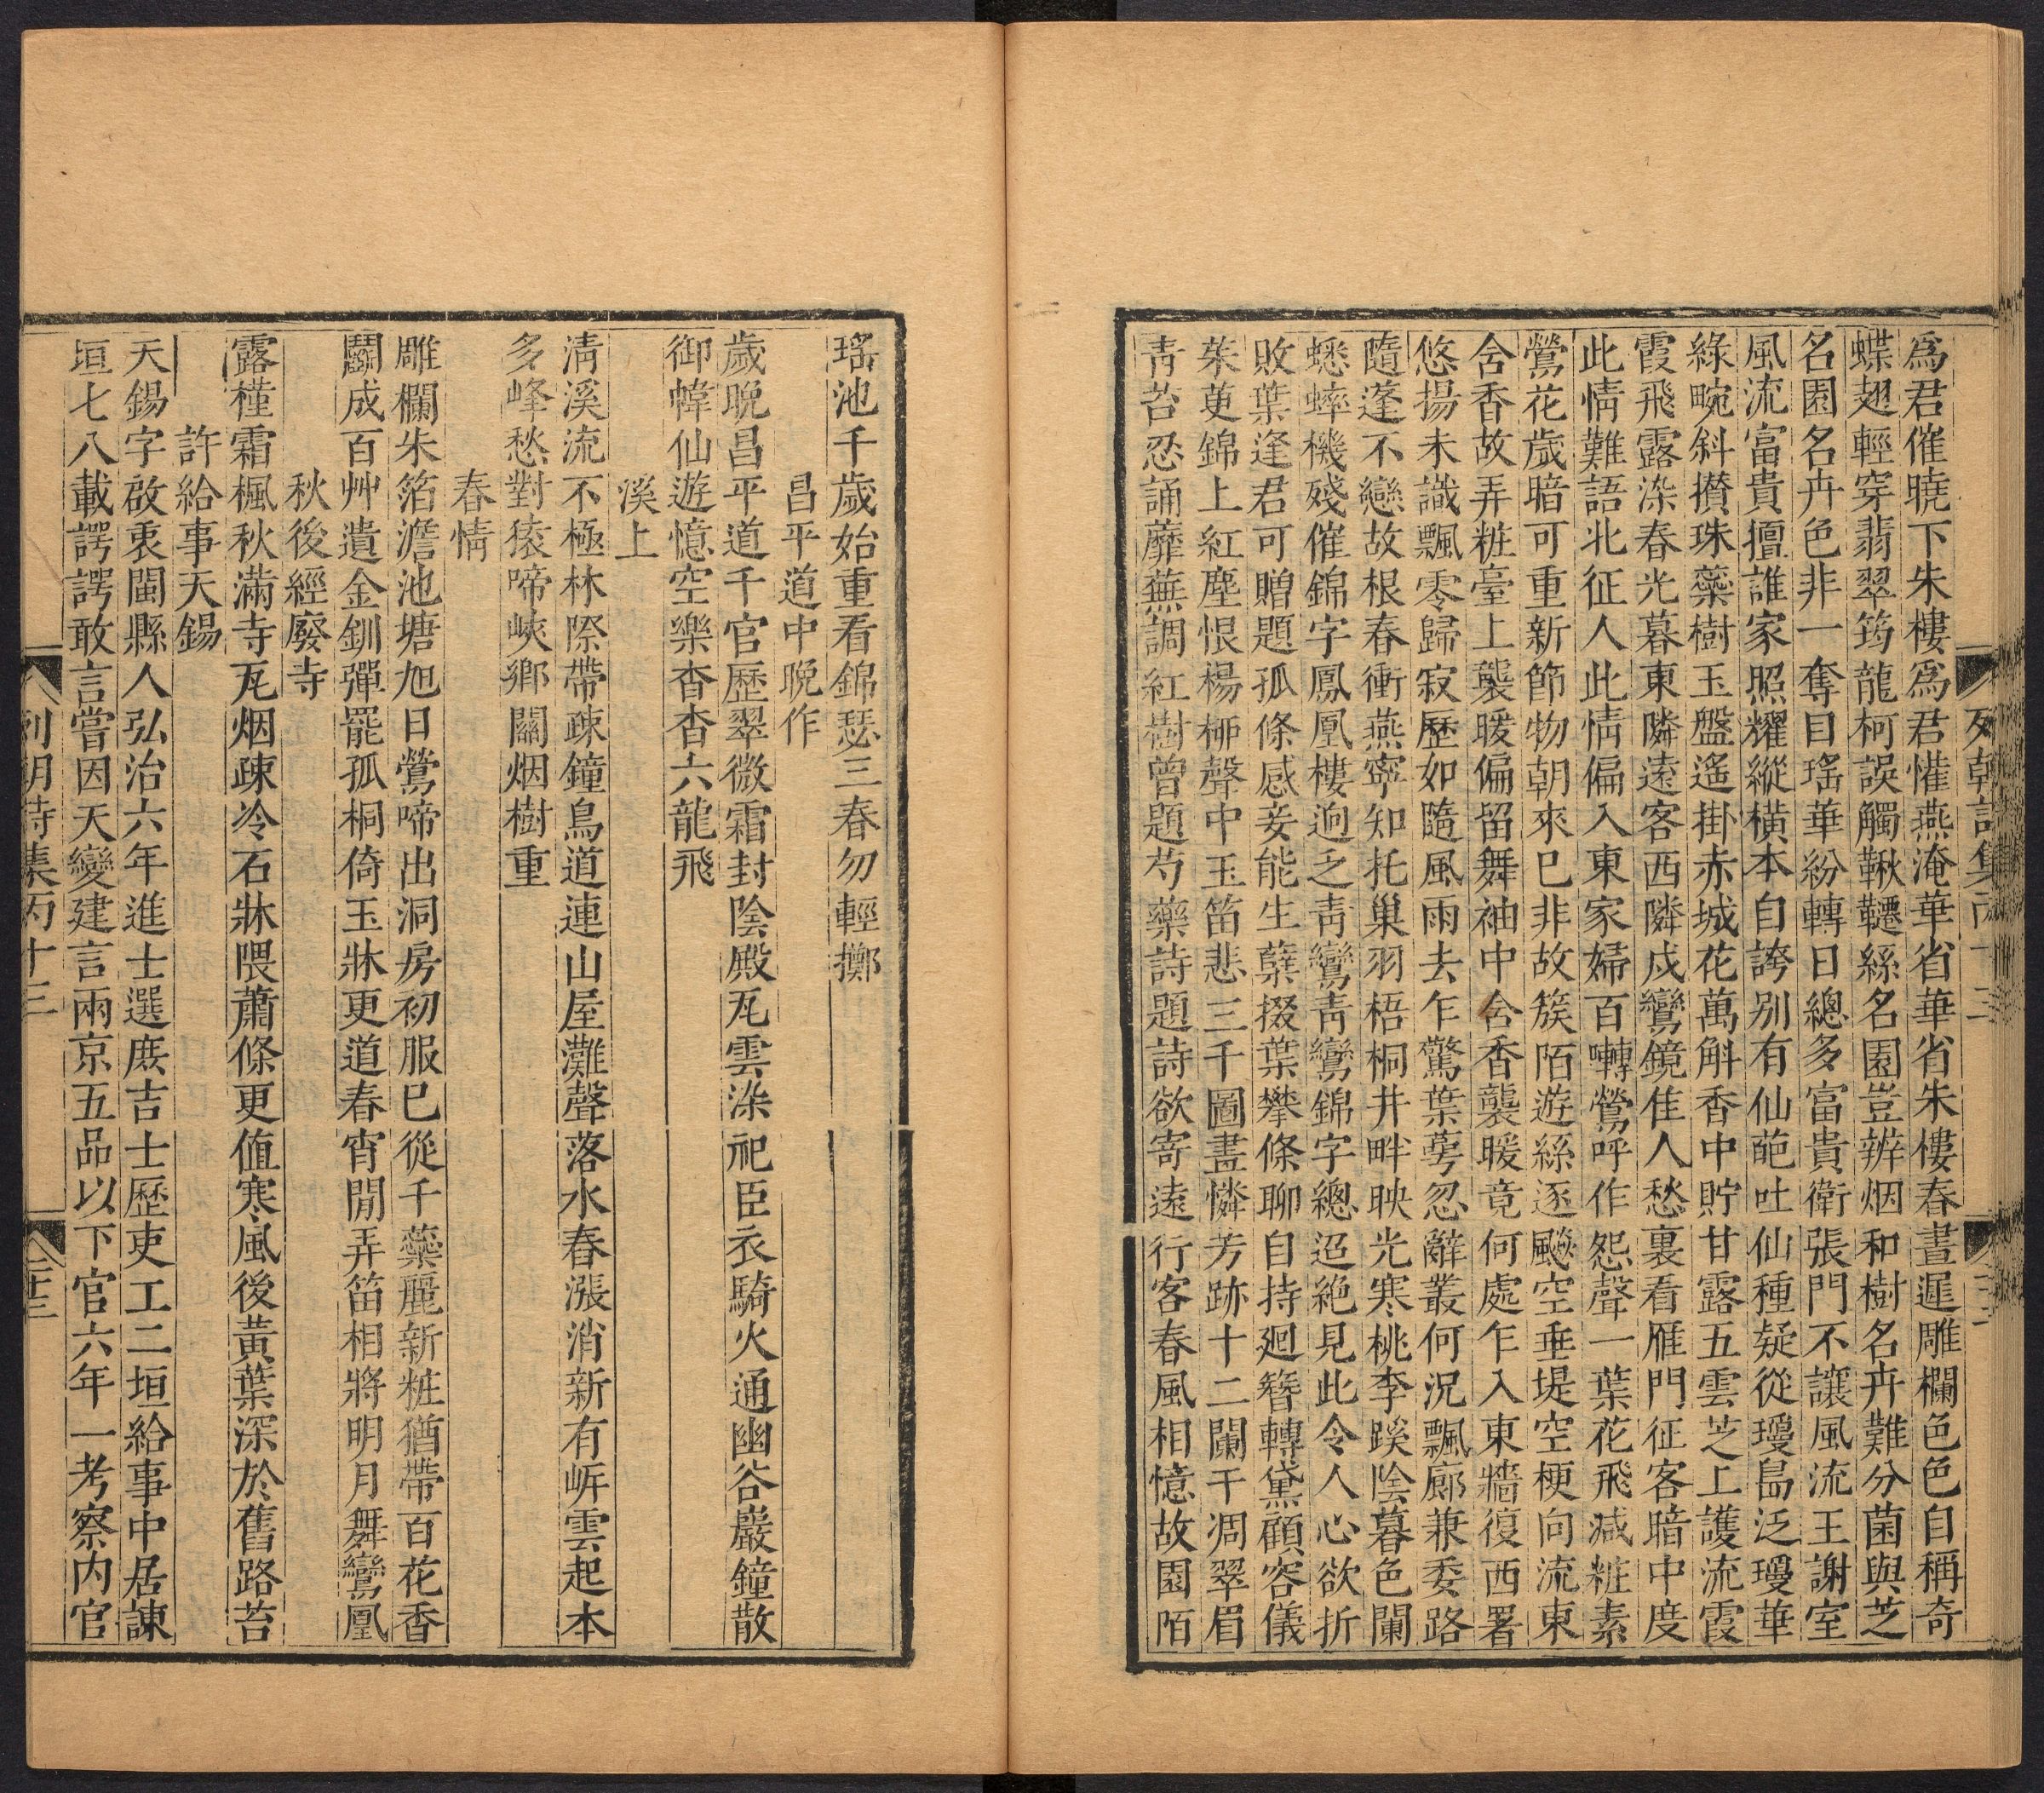 為君催曉下朱樓為君慛燕淹華省華省朱樓春晝遲雕欄色色自稱奇
蝶翅輕穿翡翠筠龍柯誤觸鞦韆絲名園豈辨烟和樹名卉難分菌與芝
名園名卉色非一奪目瑤華紛轉日總多富貴衛張門不讓風流王謝室
風流富貴擅誰家照耀縱橫本自誇別有仙葩吐仙種疑從瓊島泛瓊華
綠畹斜攅珠蘂樹玉盤遙掛赤城花萬斛香中貯甘露五雲芝上護流霞
霞飛露染春光暮東隣遠客西隣戍鸞鏡佳人愁裏看雁門征客暗中度
此情難語北征人此情偏入東家婦百囀鶯呼作怨聲一葉花飛減粧素
鶯花歲暗可重新節物朝來已非故簇陌遊絲逐颺空垂堤空梗向流東
含香故弄粧臺上襲暖偏留舞袖中含香襲暖竟何處乍入東牆復西署
悠揚未識飄零歸寂歷如隨風雨去乍驚葉蕚忽辭叢何況飄廊兼委路
隨蓬不戀故根春衝燕寧知托巢羽梧桐井畔映光寒桃李蹊陰暮色闌
蟋蟀機殘催錦字鳳凰樓逈乏靑鸞靑鸞錦字總迢絶見此令人心欲折
敗葉逢君可贈題孤條感妾能生孽掇葉攀條聊自持廻簪轉黛顧容儀
茱萸錦上紅塵恨楊桺聲中玉笛悲三千圖畫憐芳跡十二闌干凋翠眉
靑苔忍誦蘼蕪調紅樹曾題芍藥詩題詩欲寄遠行客春風相憶故園陌
瑤池千歲始重看錦瑟三春勿輕擲
昌平道中晚作
歲晚昌平道千官歷翠微霜封陰殿瓦雲染祀臣衣騎火通幽谷巖鐘散
御幃仙遊憶空樂杳杳六龍飛
溪上
淸溪流不極林際帶疎鐘鳥道連山屋灘聲落水舂漲消新有㟁雲起本
多峰愁對猿啼峽鄉關烟樹重
春情
雕欄朱箔澹池塘旭日鶯啼出洞房初服已從千蘂麗新粧猶帶百花香
鬭成百艸遺金釧彈罷孤桐倚玉牀更道春宵閒弄笛相將明月舞鸞凰
秋後經廢寺
露槿霜楓秋滿寺瓦烟疎冷石牀隈蕭條更值寒風後黃葉深於舊路苔
許給事天錫
天錫字啟衷閩縣人弘治六年進士選庶吉士歷吏工二垣給事中居諫
垣七八載諤諤敢言嘗因天變建言兩京五品以下官六年一考察内官
列朝詩集丙十三